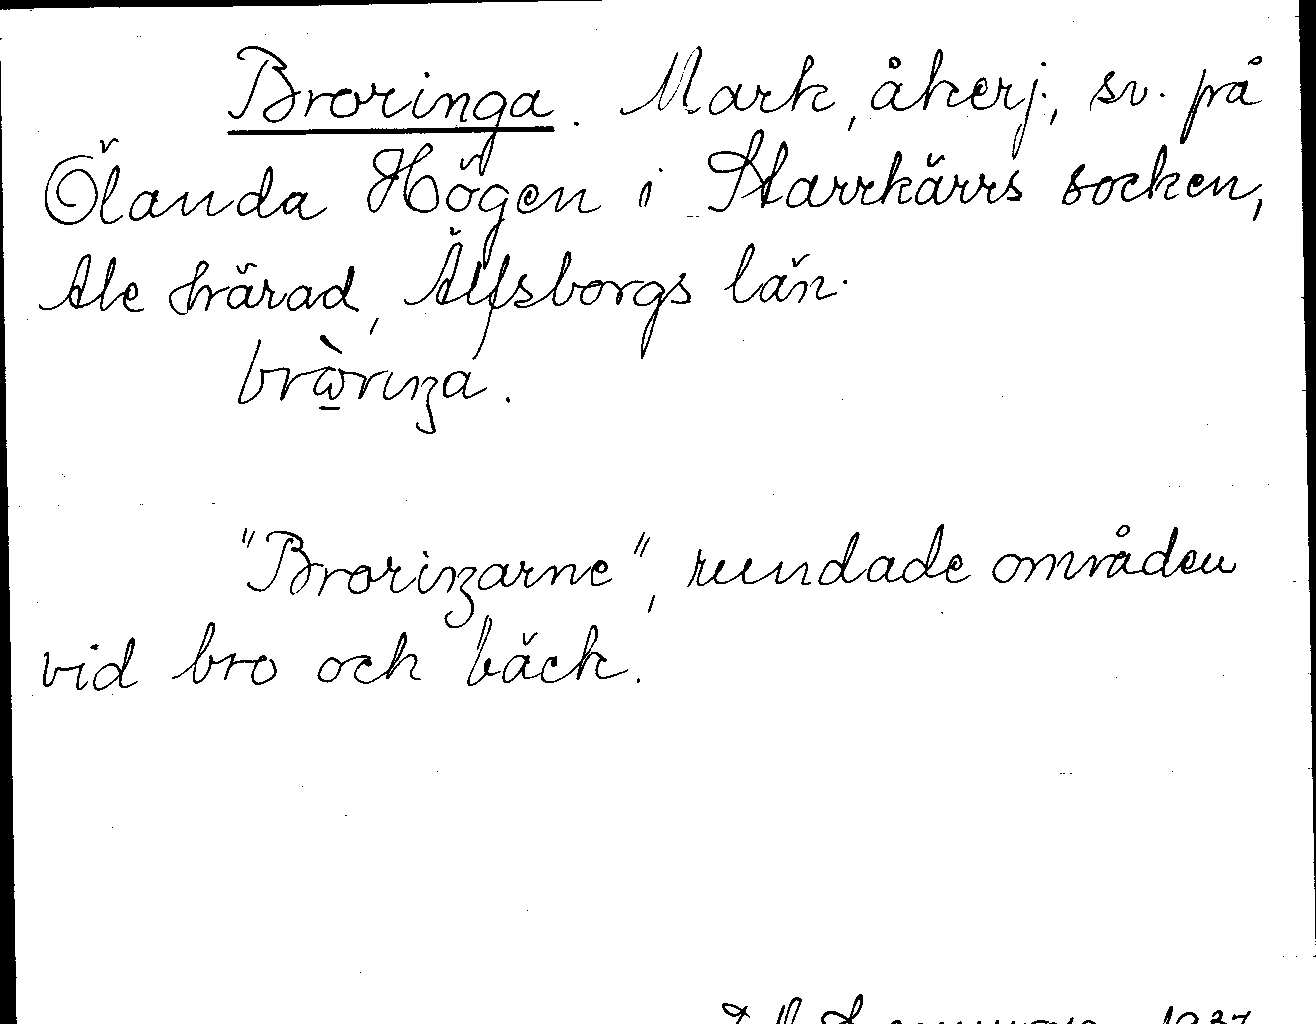 Broringa. Mark, åkerj., sv. på
Ölanda Högen i Starrkärrs socken,
Ale härad, Älfsborgs län.
"Broriŋarne", rundade områden
vid bro och bäck.
1937